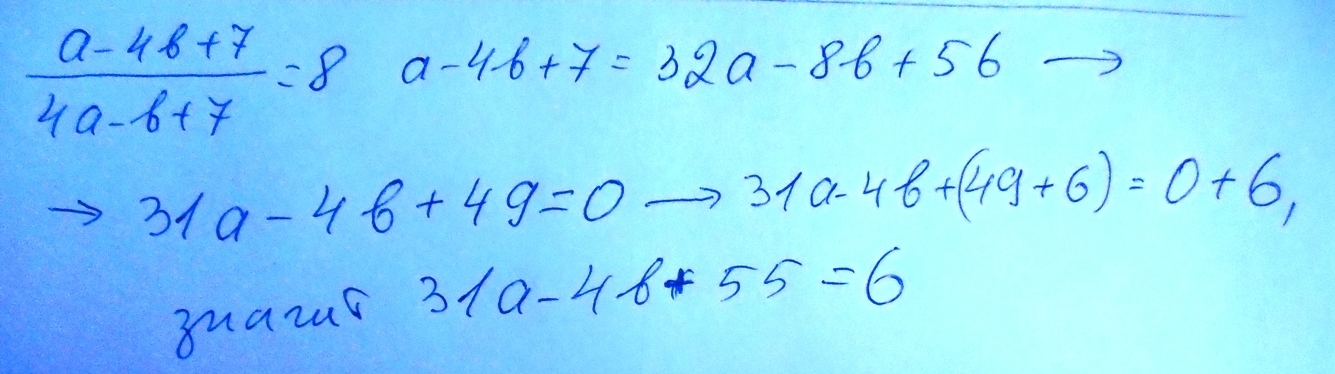 (a-4b+7)/(4a-b+7) = 8 a-4b+7 = 32a-8b+56 →
→ 31a-4b+49=0 → 31a-4b+(49+6) = 0+6,
значит 31a-4b+55=6